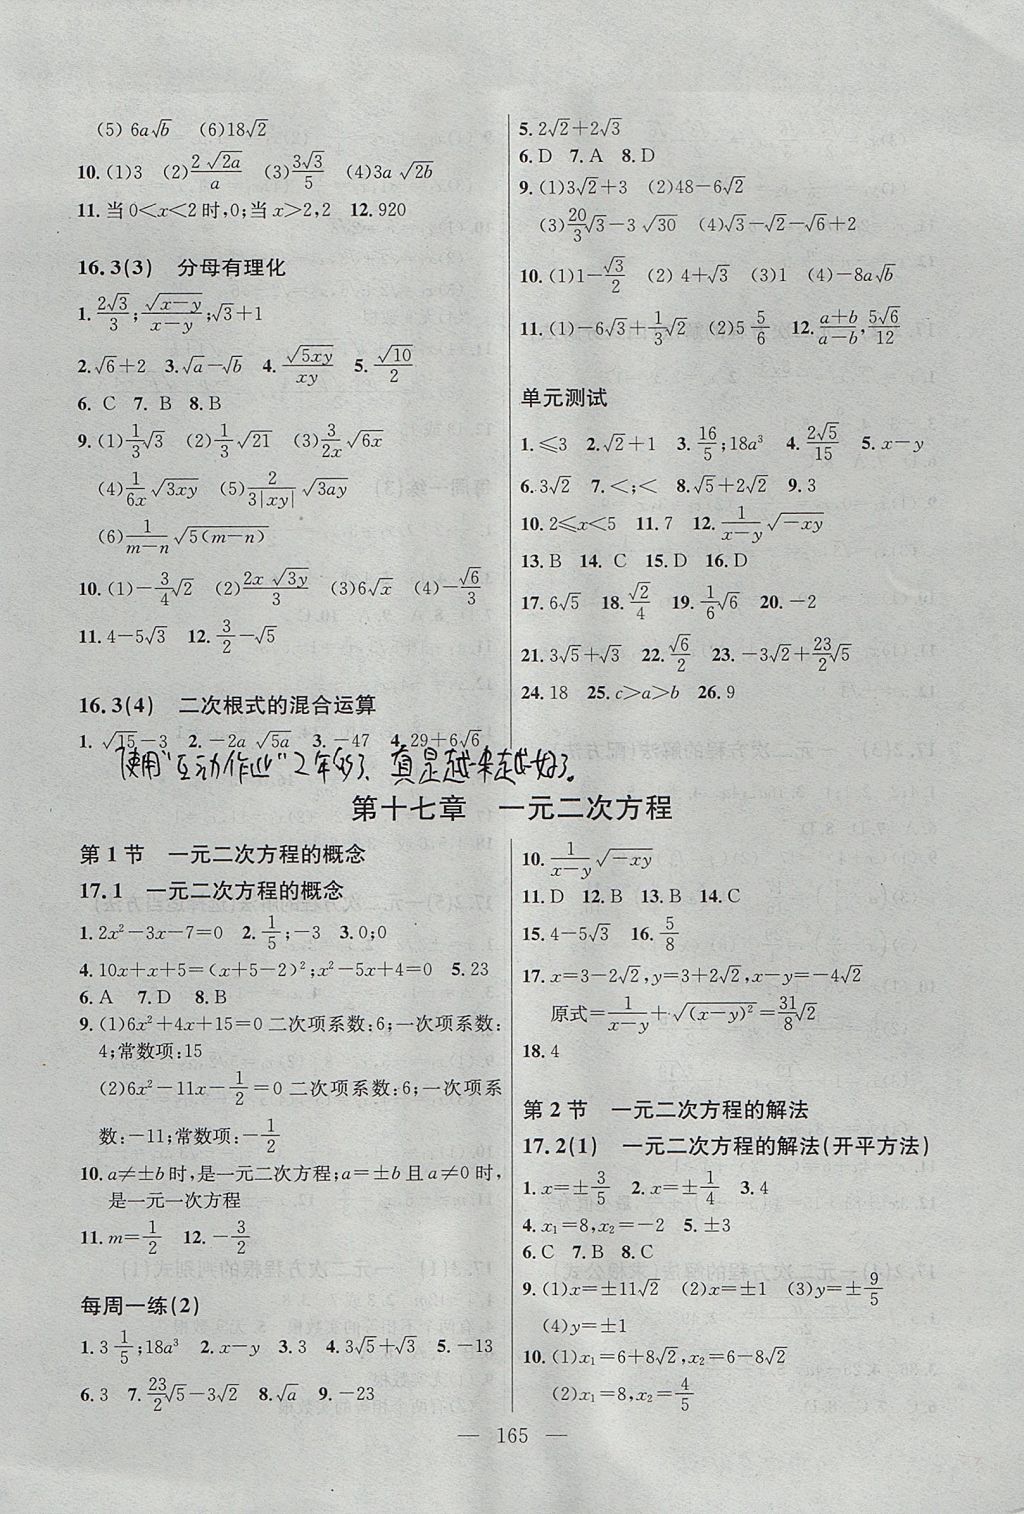 (5) 6a√b　(6)18√2
10. (1)3　(2)2√2a/a　(3)3√3/5　(4)3a√2b
11. 当0<x<2时,0;当x>2,2　12. 920
16.3(3)　分母有理化
1. 2√3/3;√x−y/x−y;√3+1
2. √6+2　3. √a−√b　4. √5xy/xy　5. √10/2
6. C　7. B　8. B
9. (1)1/3√3　(2)1/3√21　(3)3/2x√6x
(4)1/6x√3xy　(5)2/3|xy|√3ay
(6)1/m−n√5(m−n)
10. (1)−3/4√2　(2)2x√3y/3　(3)6√x　(4)−√6/3
11. 4−5√3　12. 3/2−√5
16.3(4)　二次根式的混合运算
1. √15−3　2. −2a√5a　3. −47　4. 29+6√6
5. 2√2+2√3
6. D　7. A　8. D
9. (1)3√2+3　(2)48−6√2
(3)20/3√3−3√30　(4)√3−√2−√6+2
10. (1)1−√3/2　(2)4+√3　(3)1　(4)−8a√b
11. (1)−6√3+1/3√2　(2)5 5/6　12. a+b/a−b,5√6/12
单元测试
1. ≤3　2. √2+1　3. 16/5;18a³　4. 2√5/15　5. x−y
6. 3√2　7. <;<　8. √5+2√2　9. 3
10. 2≤x<5　11. 7　12. 1/x−y√−xy
13. B　14. C　15. D　16. D
17. 6√5　18. √2/4　19. 1/6√6　20. −2
21. 3√5+√3　22. √6/2　23. −3√2+23/2√5
24. 18　25. c>a>b　26. 9
使用“互动作业”2年多了、真是越来越好了。
第十七章　一元二次方程
第1节　一元二次方程的概念
17.1　一元二次方程的概念
1. 2x²−3x−7=0　2. 1/5;−3　3. 0;0
4. 10x+x+5=(x+5−2)²;x²−5x+4=0　5. 23
6. A　7. D　8. B
9. (1)6x²+4x+15=0二次项系数:6;一次项系数:
4;常数项:15
(2)6x²−11x−1/2=0二次项系数:6;一次项系
数:−11;常数项:−1/2
10. a≠±b时,是一元二次方程;a=±b且a≠0时,
是一元一次方程
11. m=1/2　12. −3/2
每周一练(2)
1. 3 1/5;18a³　2. x−y　3. 3　4. 3√5+√3　5. −13
6. 3　7. 23/2√5−3√2　8. √a　9. −23
10. 1/x−y√−xy
11. D　12. B　13. B　14. C
15. 4−5√3　16. 5/8
17. x=3−2√2,y=3+2√2,x−y=−4√2
原式=1/x−y+√(x−y)²=31/8√2
18. 4
第2节　一元二次方程的解法
17.2(1)　一元二次方程的解法(开平方法)
1. x=±3/5　2. x=±1/4　3. 4
4. x₁=8,x₂=−2　5. ±3
6. C　7. B　8. C
9. (1)x=±11√2　(2)x=±1　(3)y=±9/5
(4)y=±1
10. (1)x₁=6+8√2,x₂=6−8√2
(2)x₁=8,x₂=4/5
— 165 —